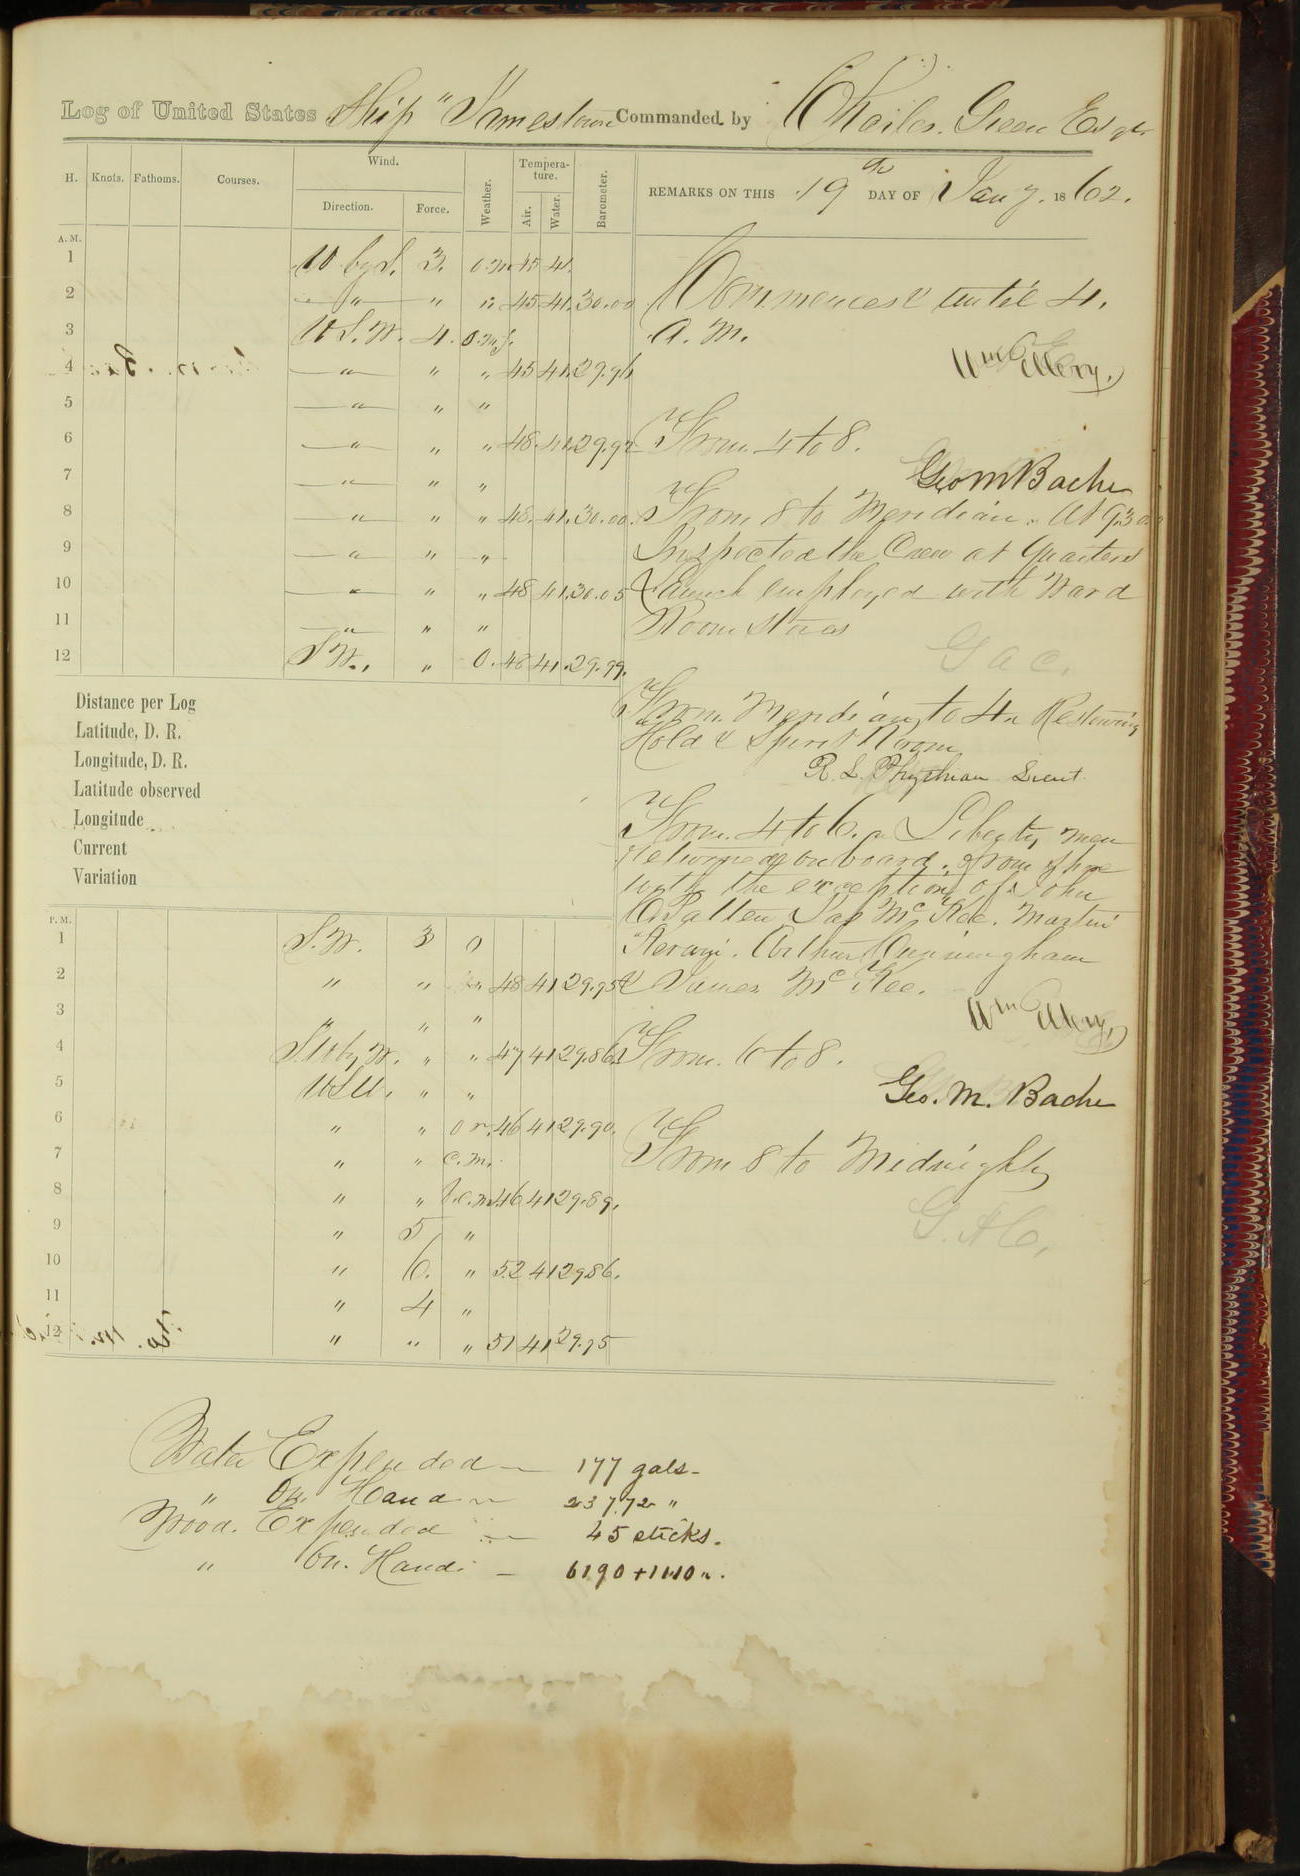 Log of United States Ship "Jamestown Commanded by Charles Green Esqr
H. Knots. Fathoms. Courses. Wind. Direction. Force. Weather. Tempera-ture. Air. Water. Barometer. REMARKS ON THIS 19th DAY OF Jany. 1862.
A. M.
1 W by S. 3. o.m. 45 41.
2 " " " 45 41. 30.00 Commences & until 4.
3 W.S.W. 4. o.m. A. M.
4 " " " 45 41. 29.96 Wm C Ellery.
5 " " "
6 " " " 48. 41. 29.92 From 4 to 8.
7 " " " Geo M Bache
8 " " " 48. 41. 30.00. From 8 to Meridian. At 9.30
9 " " " Inspected the Crew at Quarters
10 " " " 48 41. 30.05 Launch employed with Ward
11 " " " Room Stores
12 S.W., " o. 48 41. 29.99. G A C.
Distance per Log
Latitude, D. R.
Longitude, D. R.
Latitude observed
Longitude
Current
Variation
From Meridian to 4. Restowing
Hold & Spirit Room
R. L. Phythian Lieut.
From 4 to 6. Liberty men
returned on board from shore
with the exception of John
Patten Jas McKee. Martin
Arthur Cunningham
& James McKee.
Wm C Ellery.
P. M.
1 S.W. 3 o
2 " " " 48 41 29.95
3 " " "
4 S.W by W. " " 47 41 29.86 From 6 to 8.
5 WSW. " " Geo. M. Bache
6 " " o r. 46 41 29.90.
7 " " c.m. From 8 to Midnight
8 " " b.c.m. 46 41 29.89.
9 " 5 " G. A C.
10 " 6. " 52 41 29.86.
11 " 4 "
12 " " " 51 41 29.95
Water Expended — 177 gals.
" On Hand — 23772 "
Wood. Expended — 45 sticks.
" On. Hand. — 6190 + 1140 ".